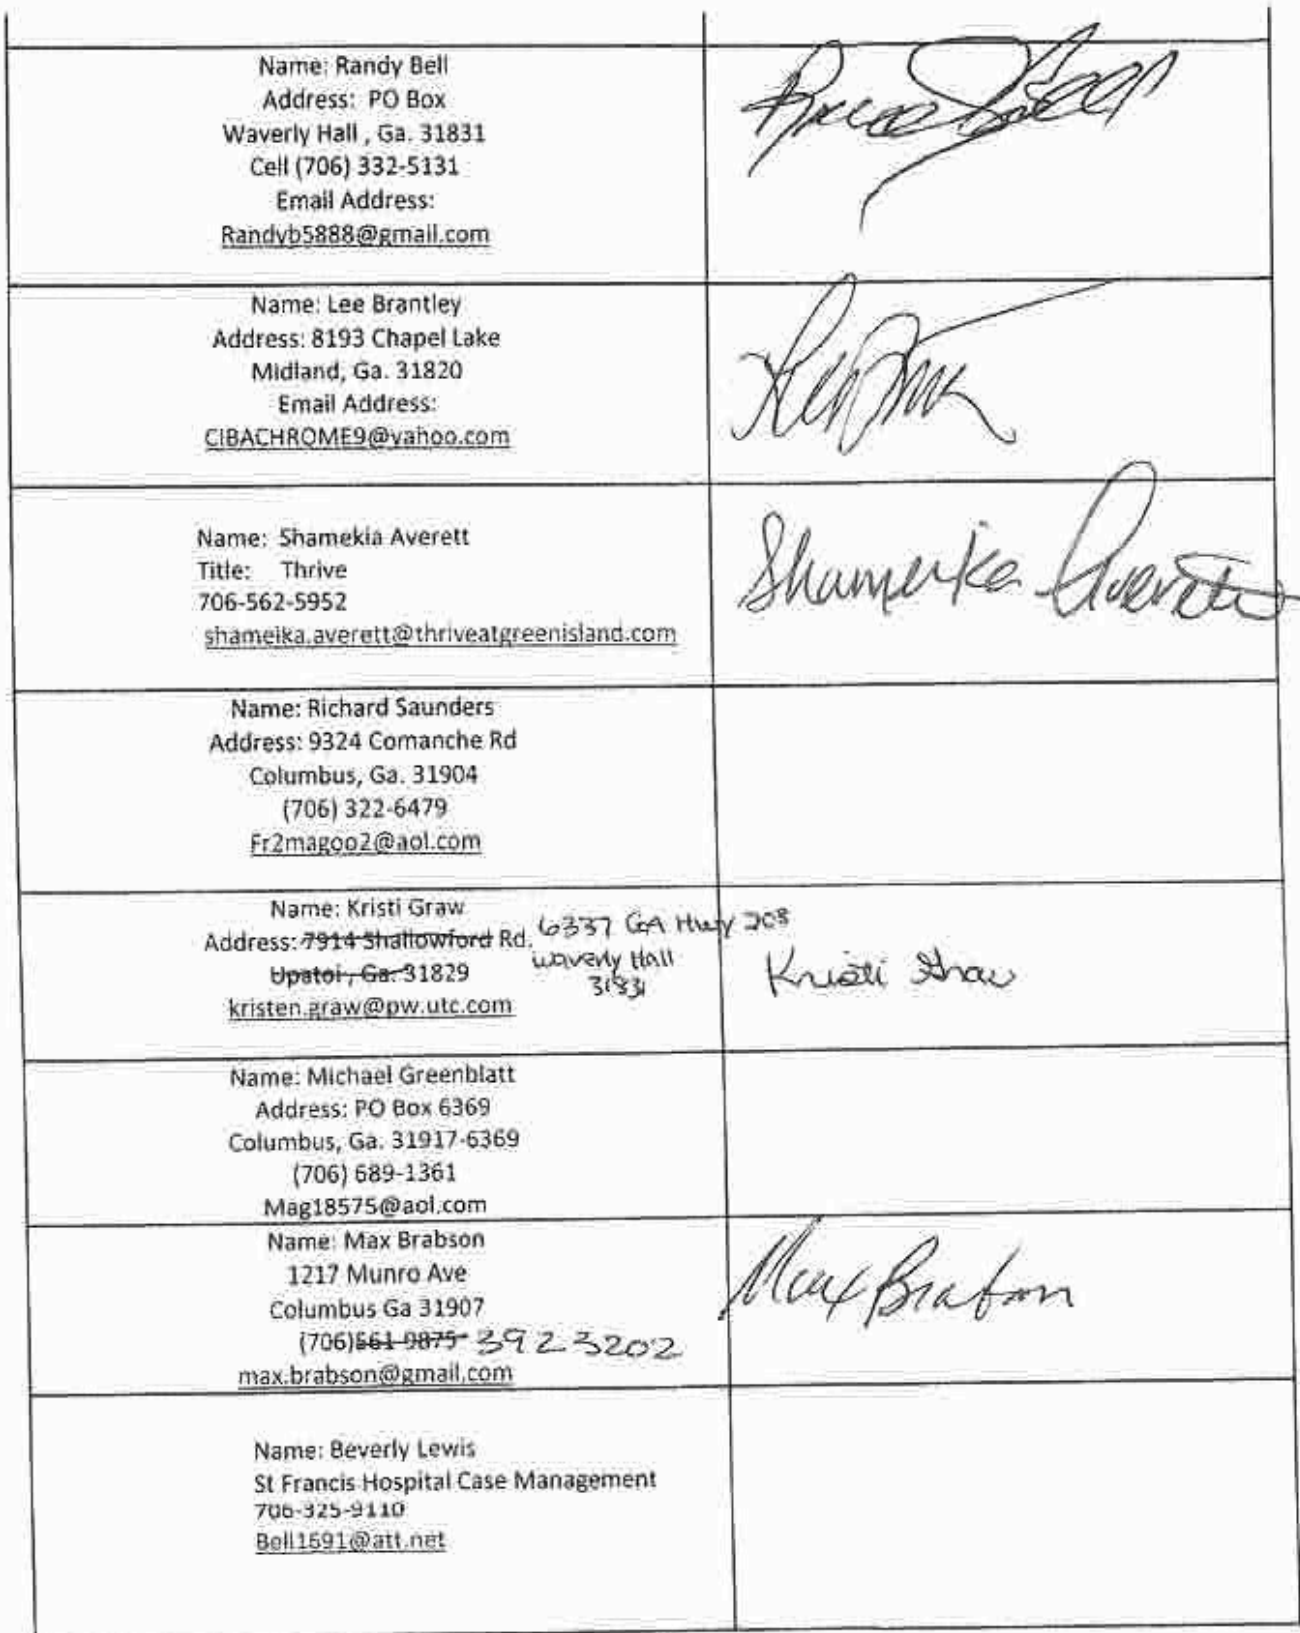 Name: Randy Bell
Address: PO Box
Waverly Hall , Ga. 31831
Cell (706) 332-5131
Email Address:
Randyb5888@gmail.com
Name: Lee Brantley
Address: 8193 Chapel Lake
Midland, Ga. 31820
Email Address:
CIBACHROME9@yahoo.com
Name: Shamekia Averett
Title: Thrive
706-562-5952
shameika.averett@thriveatgreenisland.com
Shameika Averett
Name: Richard Saunders
Address: 9324 Comanche Rd
Columbus, Ga. 31904
(706) 322-6479
Fr2magoo2@aol.com
Name: Kristi Graw
Address: 7914 Shallowford Rd. 6337 GA Hwy 208
Upatoi , Ga. 31829 Waverly Hall
31831
kristen.graw@pw.utc.com
Kristi Graw
Name: Michael Greenblatt
Address: PO Box 6369
Columbus, Ga. 31917-6369
(706) 689-1361
Mag18575@aol.com
Name: Max Brabson
1217 Munro Ave
Columbus Ga 31907
(706)561-9875 392 3202
max.brabson@gmail.com
Max Brabson
Name: Beverly Lewis
St Francis Hospital Case Management
706-325-9110
Bell1691@att.net